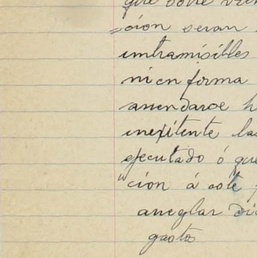 que sobre
cion seran
intramisibles
ni en firma
arrendarse h
inexitente las
ejecutado ó que
cion á este
arreglar di
gasto